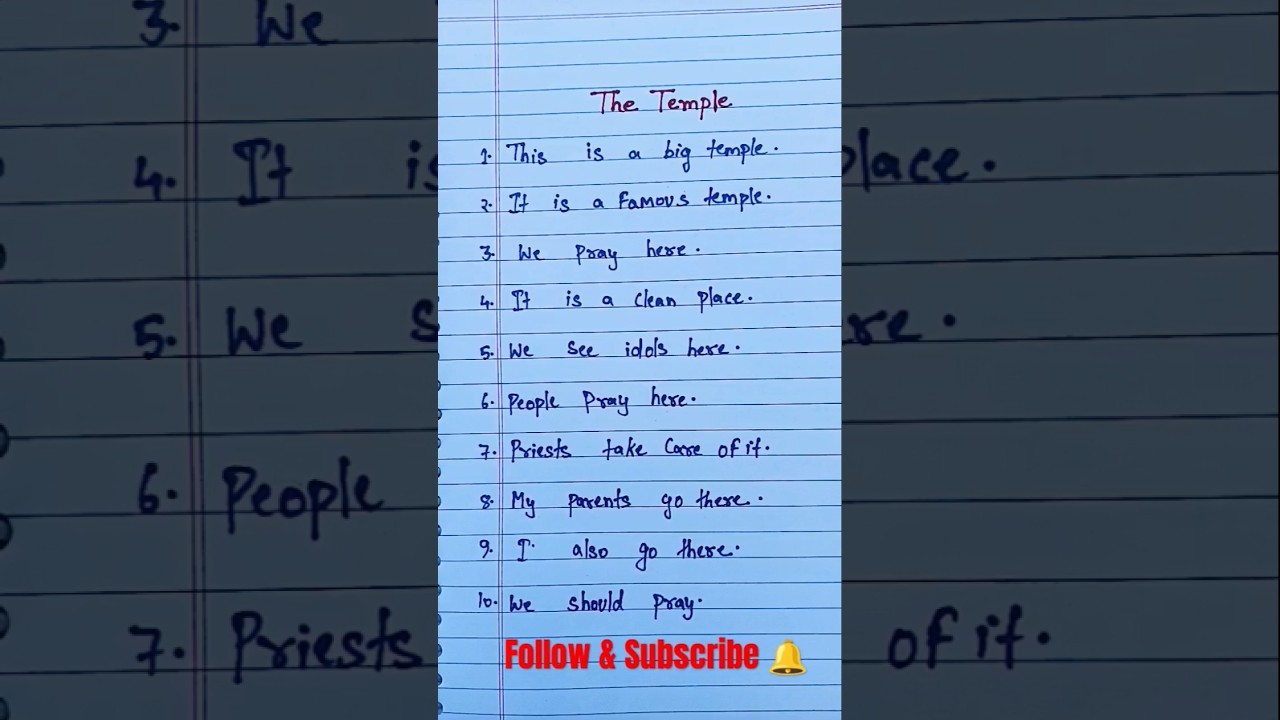 The Temple
1. This is a big temple.
2. It is a famous temple.
3. We pray here.
4. It is a clean place.
5. We see idols here.
6. People pray here.
7. Priests take care of it.
8. My parents go there.
9. I also go there.
10. We should pray.
Follow & Subscribe 🔔
3. We
4. It is
place.
5. We s
re.
6. People
7. Priests
of it.